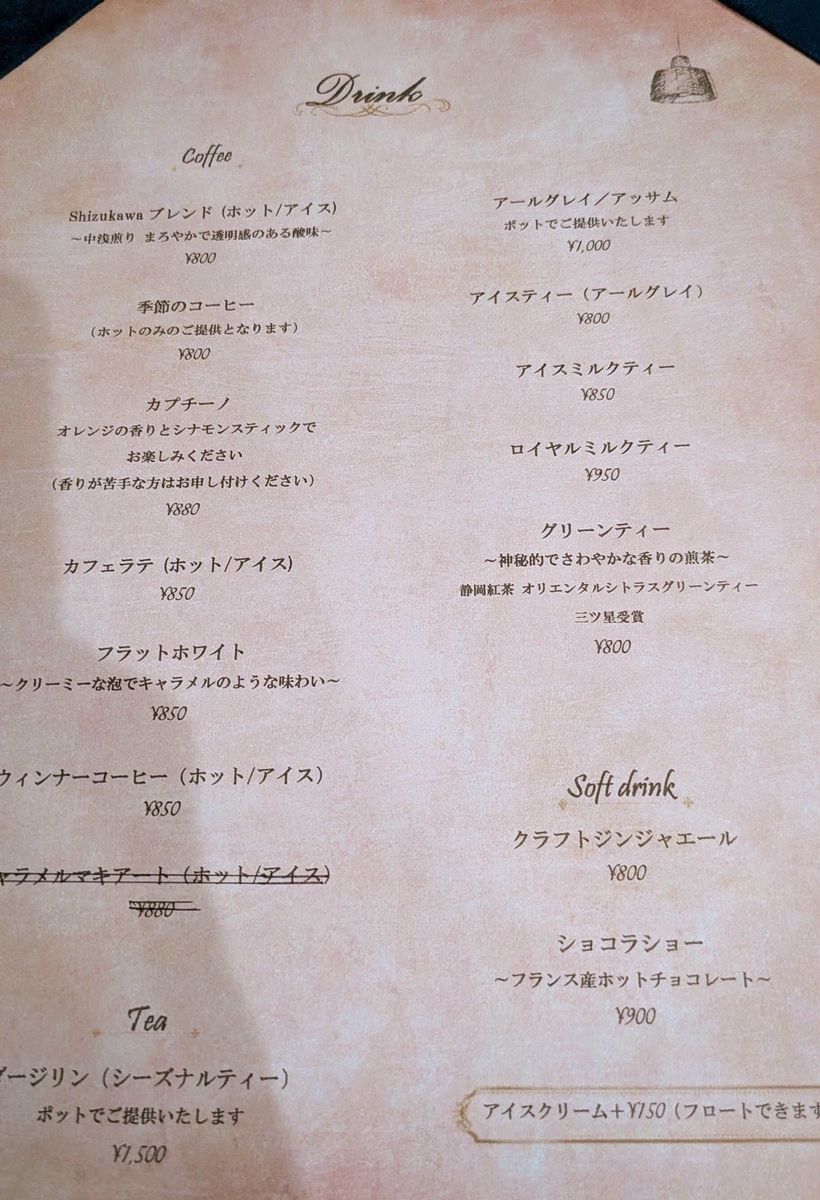 Drink
Coffee
Shizukawa ブレンド (ホット/アイス)
～中浅煎り まろやかで透明感のある酸味～
¥800
季節のコーヒー
（ホットのみのご提供となります）
¥800
カプチーノ
オレンジの香りとシナモンスティックで
お楽しみください
（香りが苦手な方はお申し付けください）
¥880
カフェラテ (ホット/アイス)
¥850
フラットホワイト
～クリーミーな泡でキャラメルのような味わい～
¥850
ウィンナーコーヒー（ホット/アイス）
¥850
ャラメルマキアート（ホット/アイス）
¥880
Tea
ダージリン（シーズナルティー）
ポットでご提供いたします
¥1,500
アールグレイ／アッサム
ポットでご提供いたします
¥1,000
アイスティー（アールグレイ）
¥800
アイスミルクティー
¥850
ロイヤルミルクティー
¥950
グリーンティー
～神秘的でさわやかな香りの煎茶～
静岡紅茶 オリエンタルシトラスグリーンティー
三ツ星受賞
¥800
Soft drink
クラフトジンジャエール
¥800
ショコラショー
～フランス産ホットチョコレート～
¥900
アイスクリーム＋¥150（フロートできます